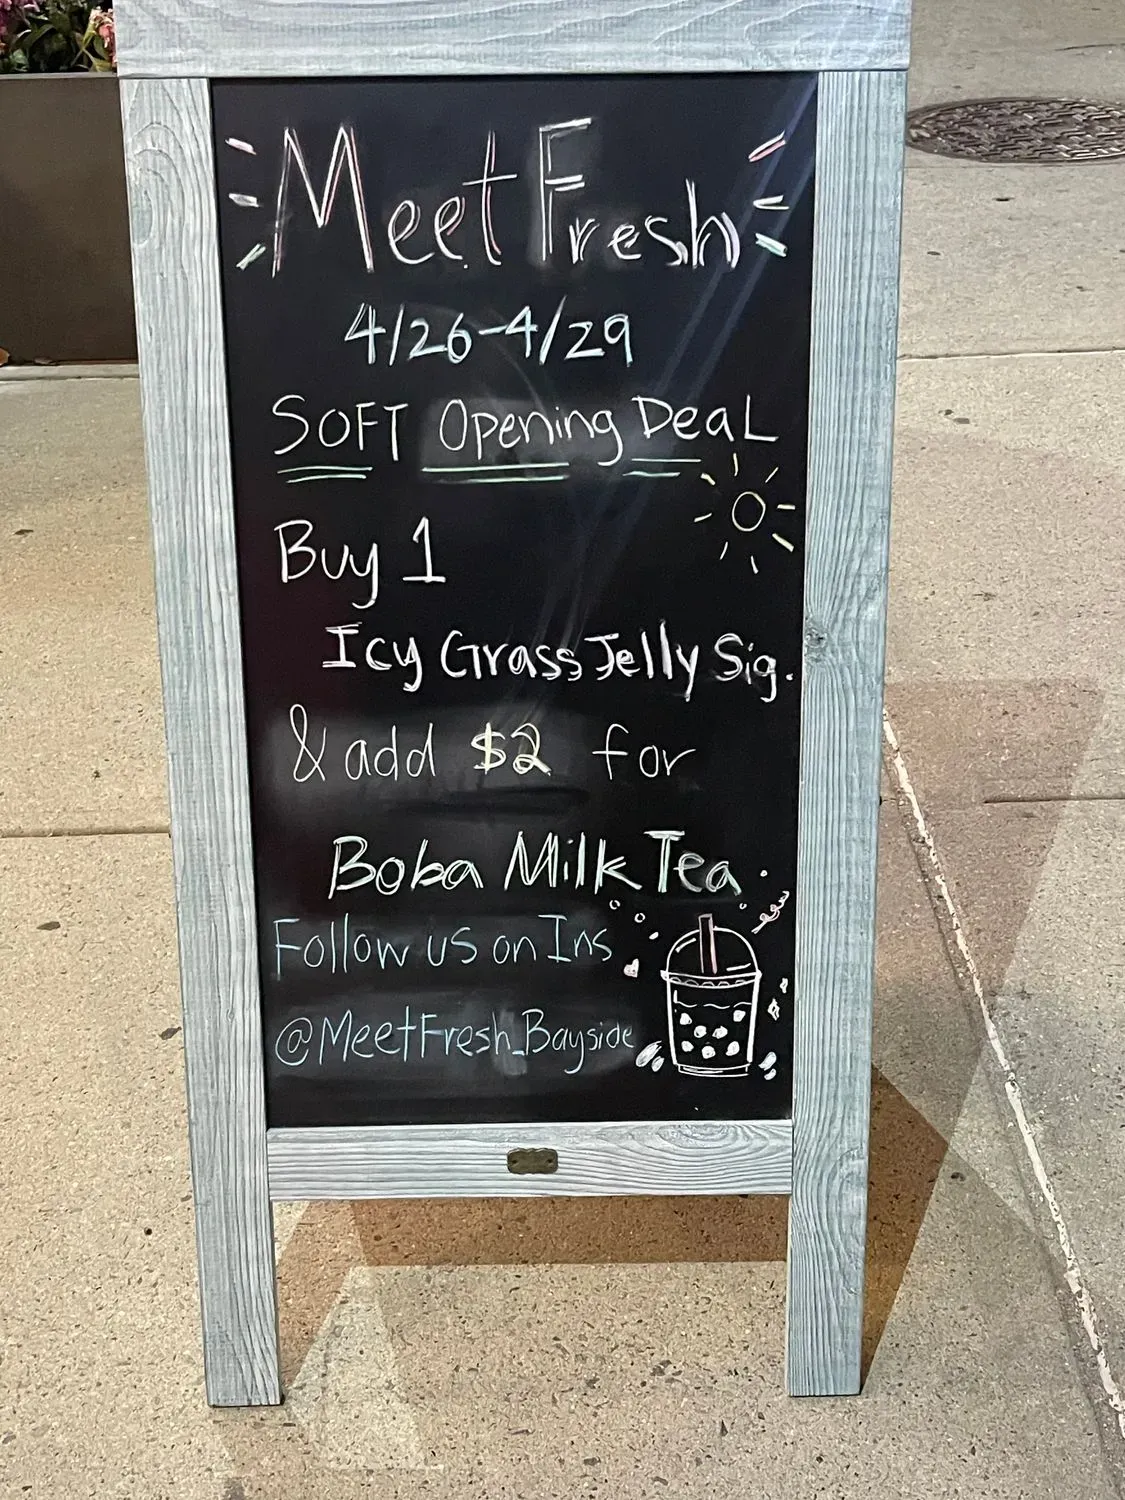 Meet Fresh
4/26-4/29
SOFT Opening DeaL
Buy 1
Icy Grass Jelly Sig.
& add $2 for
Boba Milk Tea.
Follow us on Ins
@MeetFresh_Bayside